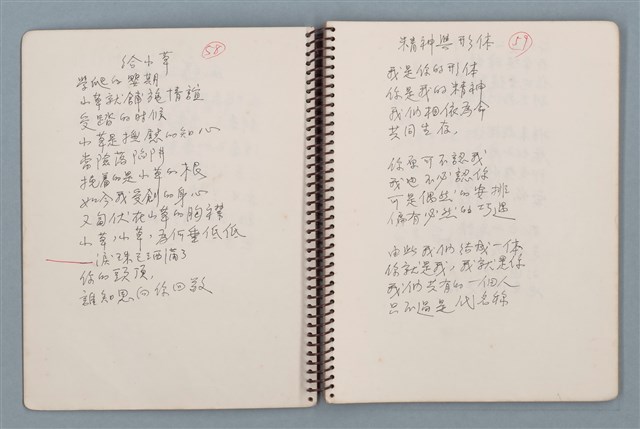 58
給小草
學爬的嬰期
小草就鋪施情誼
受踏的時候
小草是挫愁的知心
常陰落陷阱
挽着的是小草的根
如今我受創的身心
又匍伏在小草的胸襟
小草,小草,為何垂低低
淚珠已洒滿了
你的頭頂,
誰知恩向你回敬
59
精神與形体
我是你的形体
你是我的精神
我們相依為命
共同生存。
你原可不認我
我也不必認你
可是偶然的安排
偏有必然的巧遇
由此我們結成一体
你就是我,我就是你
我們共有的一個人
只不過是代名稱